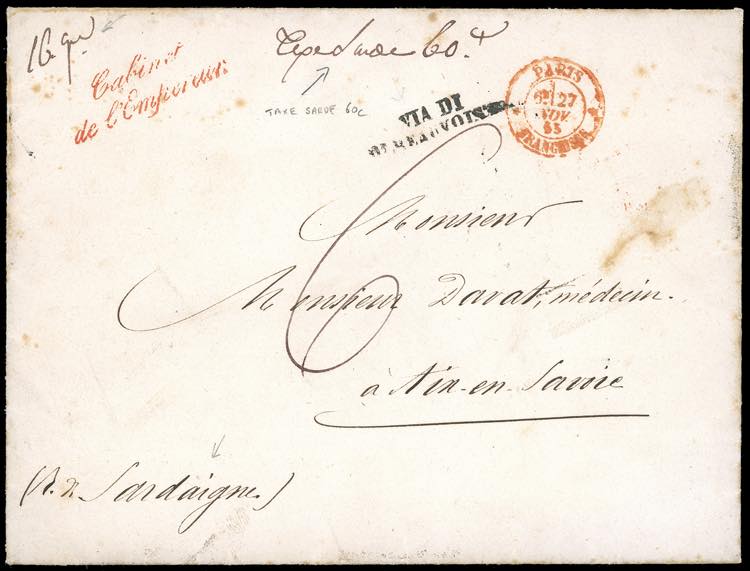 16 gr
Cabinet
de l'Empereur
Taxe Sarde 60.c
TAXE SARDE 60c
VIA DI
PT BEAUVOISIN
PARIS
27
NOV.
55
FRANCHISE
6
Monsieur
Monsieur Davat, médecin.
à Aix-en-Savoie
(R. de Sardaigne.)